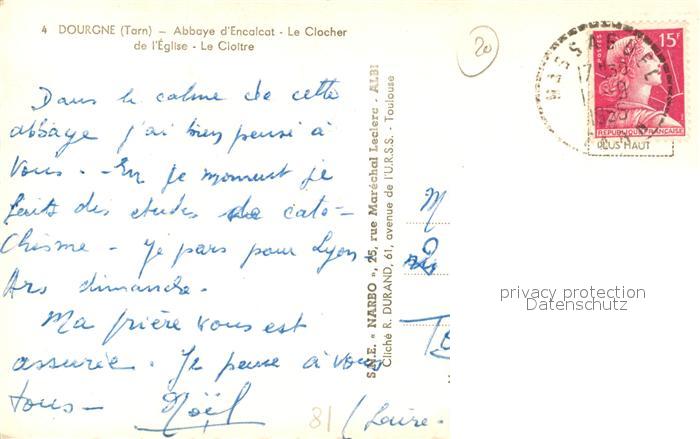 4 DOURGNE (Tarn) — Abbaye d'Encalcat - Le Clocher
de l'Église - Le Cloître
20
15F
POSTES
REPUBLIQUE FRANÇAISE
PLUS HAUT
Dans le calme de cette
abbaye j'ai bien pensé à
vous. - En ce moment je
fais des etudes de caté-
chisme - je pars pour Lyon-
Ars dimanche.
Ma prière vous est
assurée. Je pense à vous
tous — Noël
S.N.E. « NARBO », 25, rue Maréchal Leclerc - ALBI
Cliché R. DURAND, 61, avenue de l'U.R.S.S. - Toulouse
M
81 (Loire-
privacy protection
Datenschutz